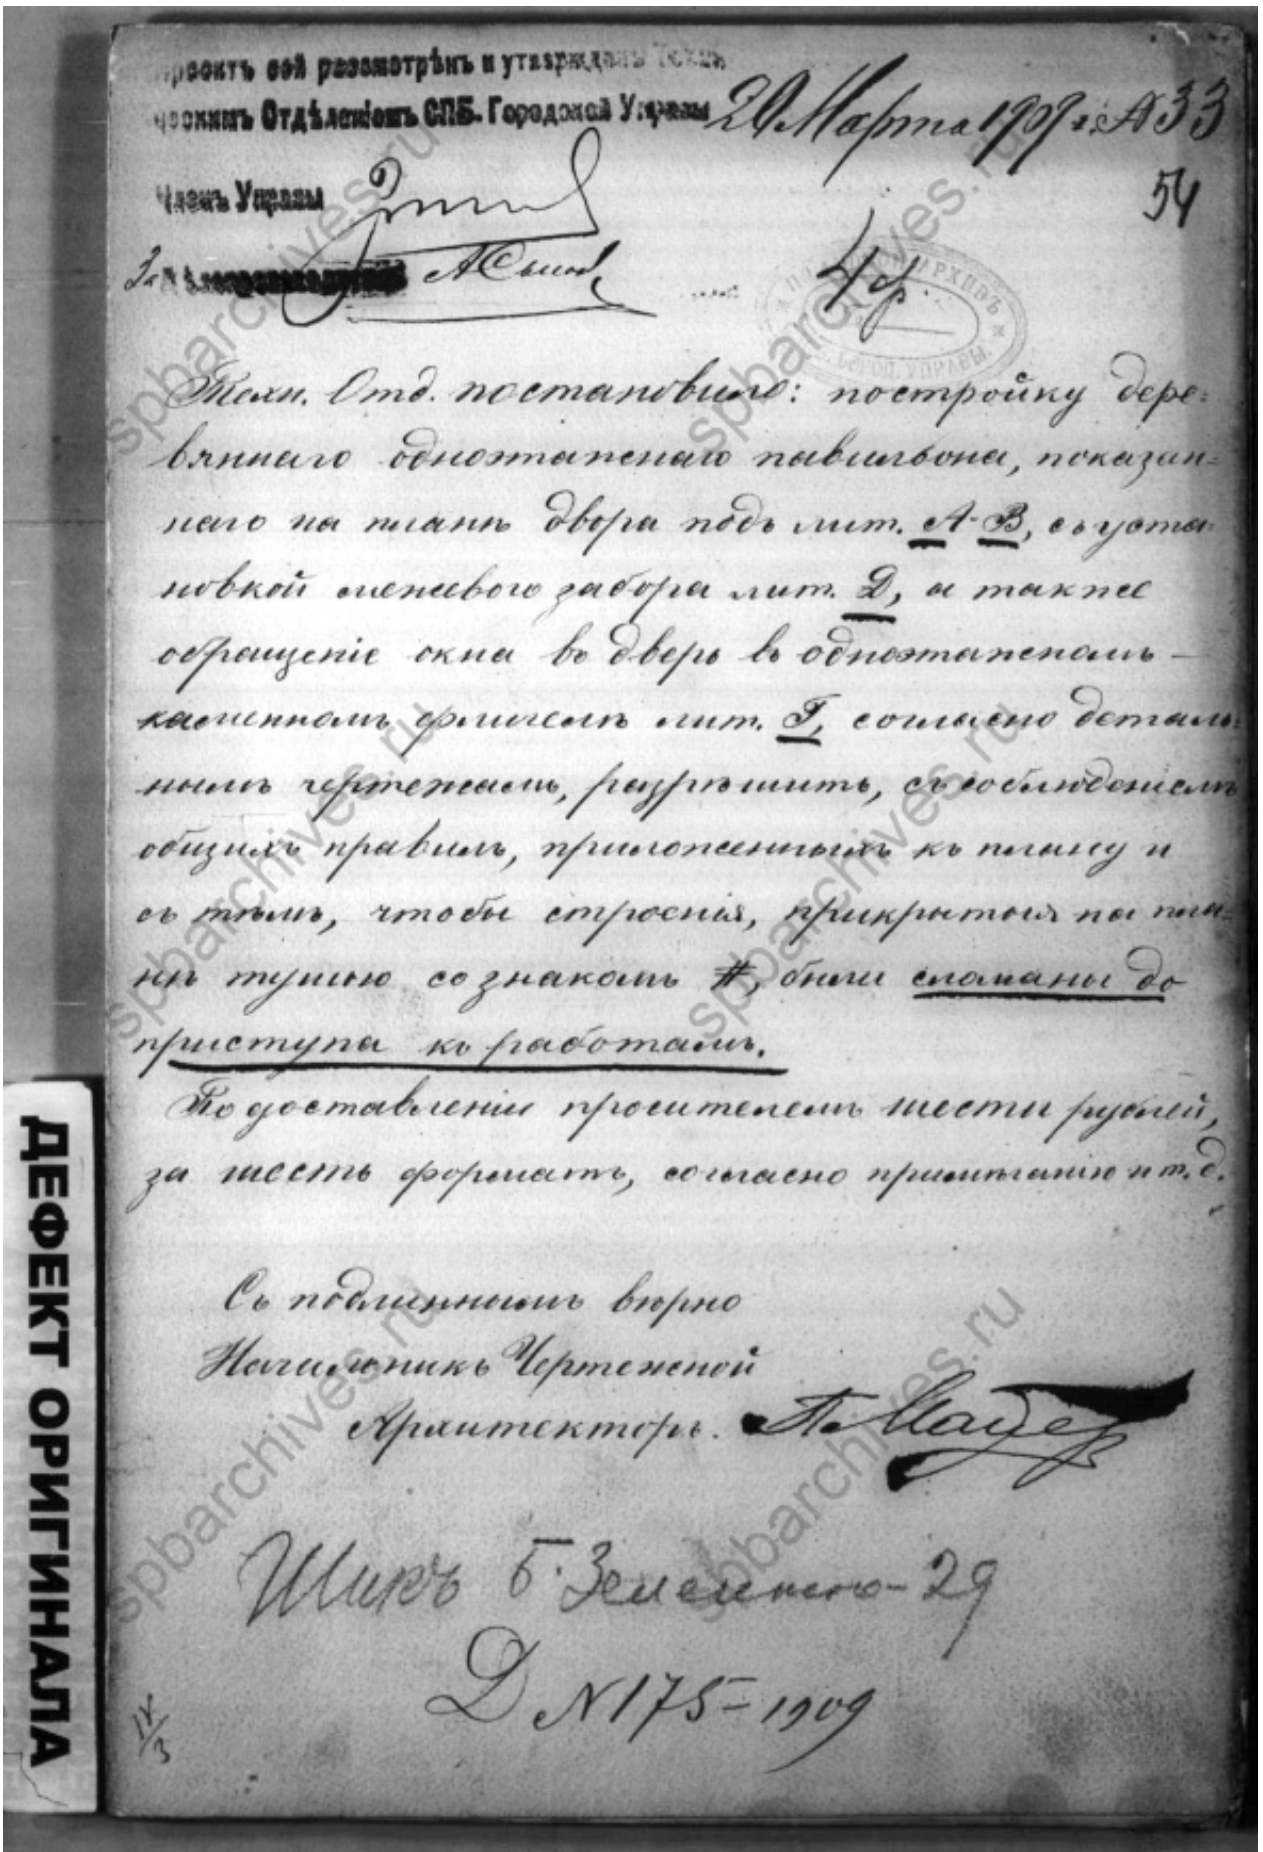 Проектъ сей разсмотрѣнъ и утвержденъ Техни
ческимъ Отдѣленіемъ СПБ. Городской Управы 20 Марта 1909 г. № 33
54
Членъ Управы
За Дѣлопроизводителя
4 ф.
Техн. Отд. постановило: постройку дере-
вяннаго одноэтажнаго павильона, показан-
наго на планѣ двора подъ лит. А-В, съ уста-
новкой межевого забора лит. Д, а также
обращеніе окна въ дверь въ одноэтажномъ —
каменномъ флигелѣ лит. Г, согласно деталь-
нымъ чертежамъ, разрѣшить, съ соблюденіемъ
общихъ правилъ, приложеннымъ къ плану и
съ тѣмъ, чтобы строенія, прикрытыя на пла-
нѣ тушью со знакомъ #, были сломаны до
приступа къ работамъ.
По доставленіи просителемъ шести рублей,
за шесть форматъ, согласно примѣчанію и т. д.
Съ подлиннымъ вѣрно
Начальникъ Чертежной
Архитекторъ.
Шикъ Б. Зеленина - 29
Д № 175 - 1909
IV/3
ДЕФЕКТ ОРИГИНАЛА
spbarchives.ru
spbarchives.ru
spbarchives.ru
spbarchives.ru
spbarchives.ru
spbarchives.ru